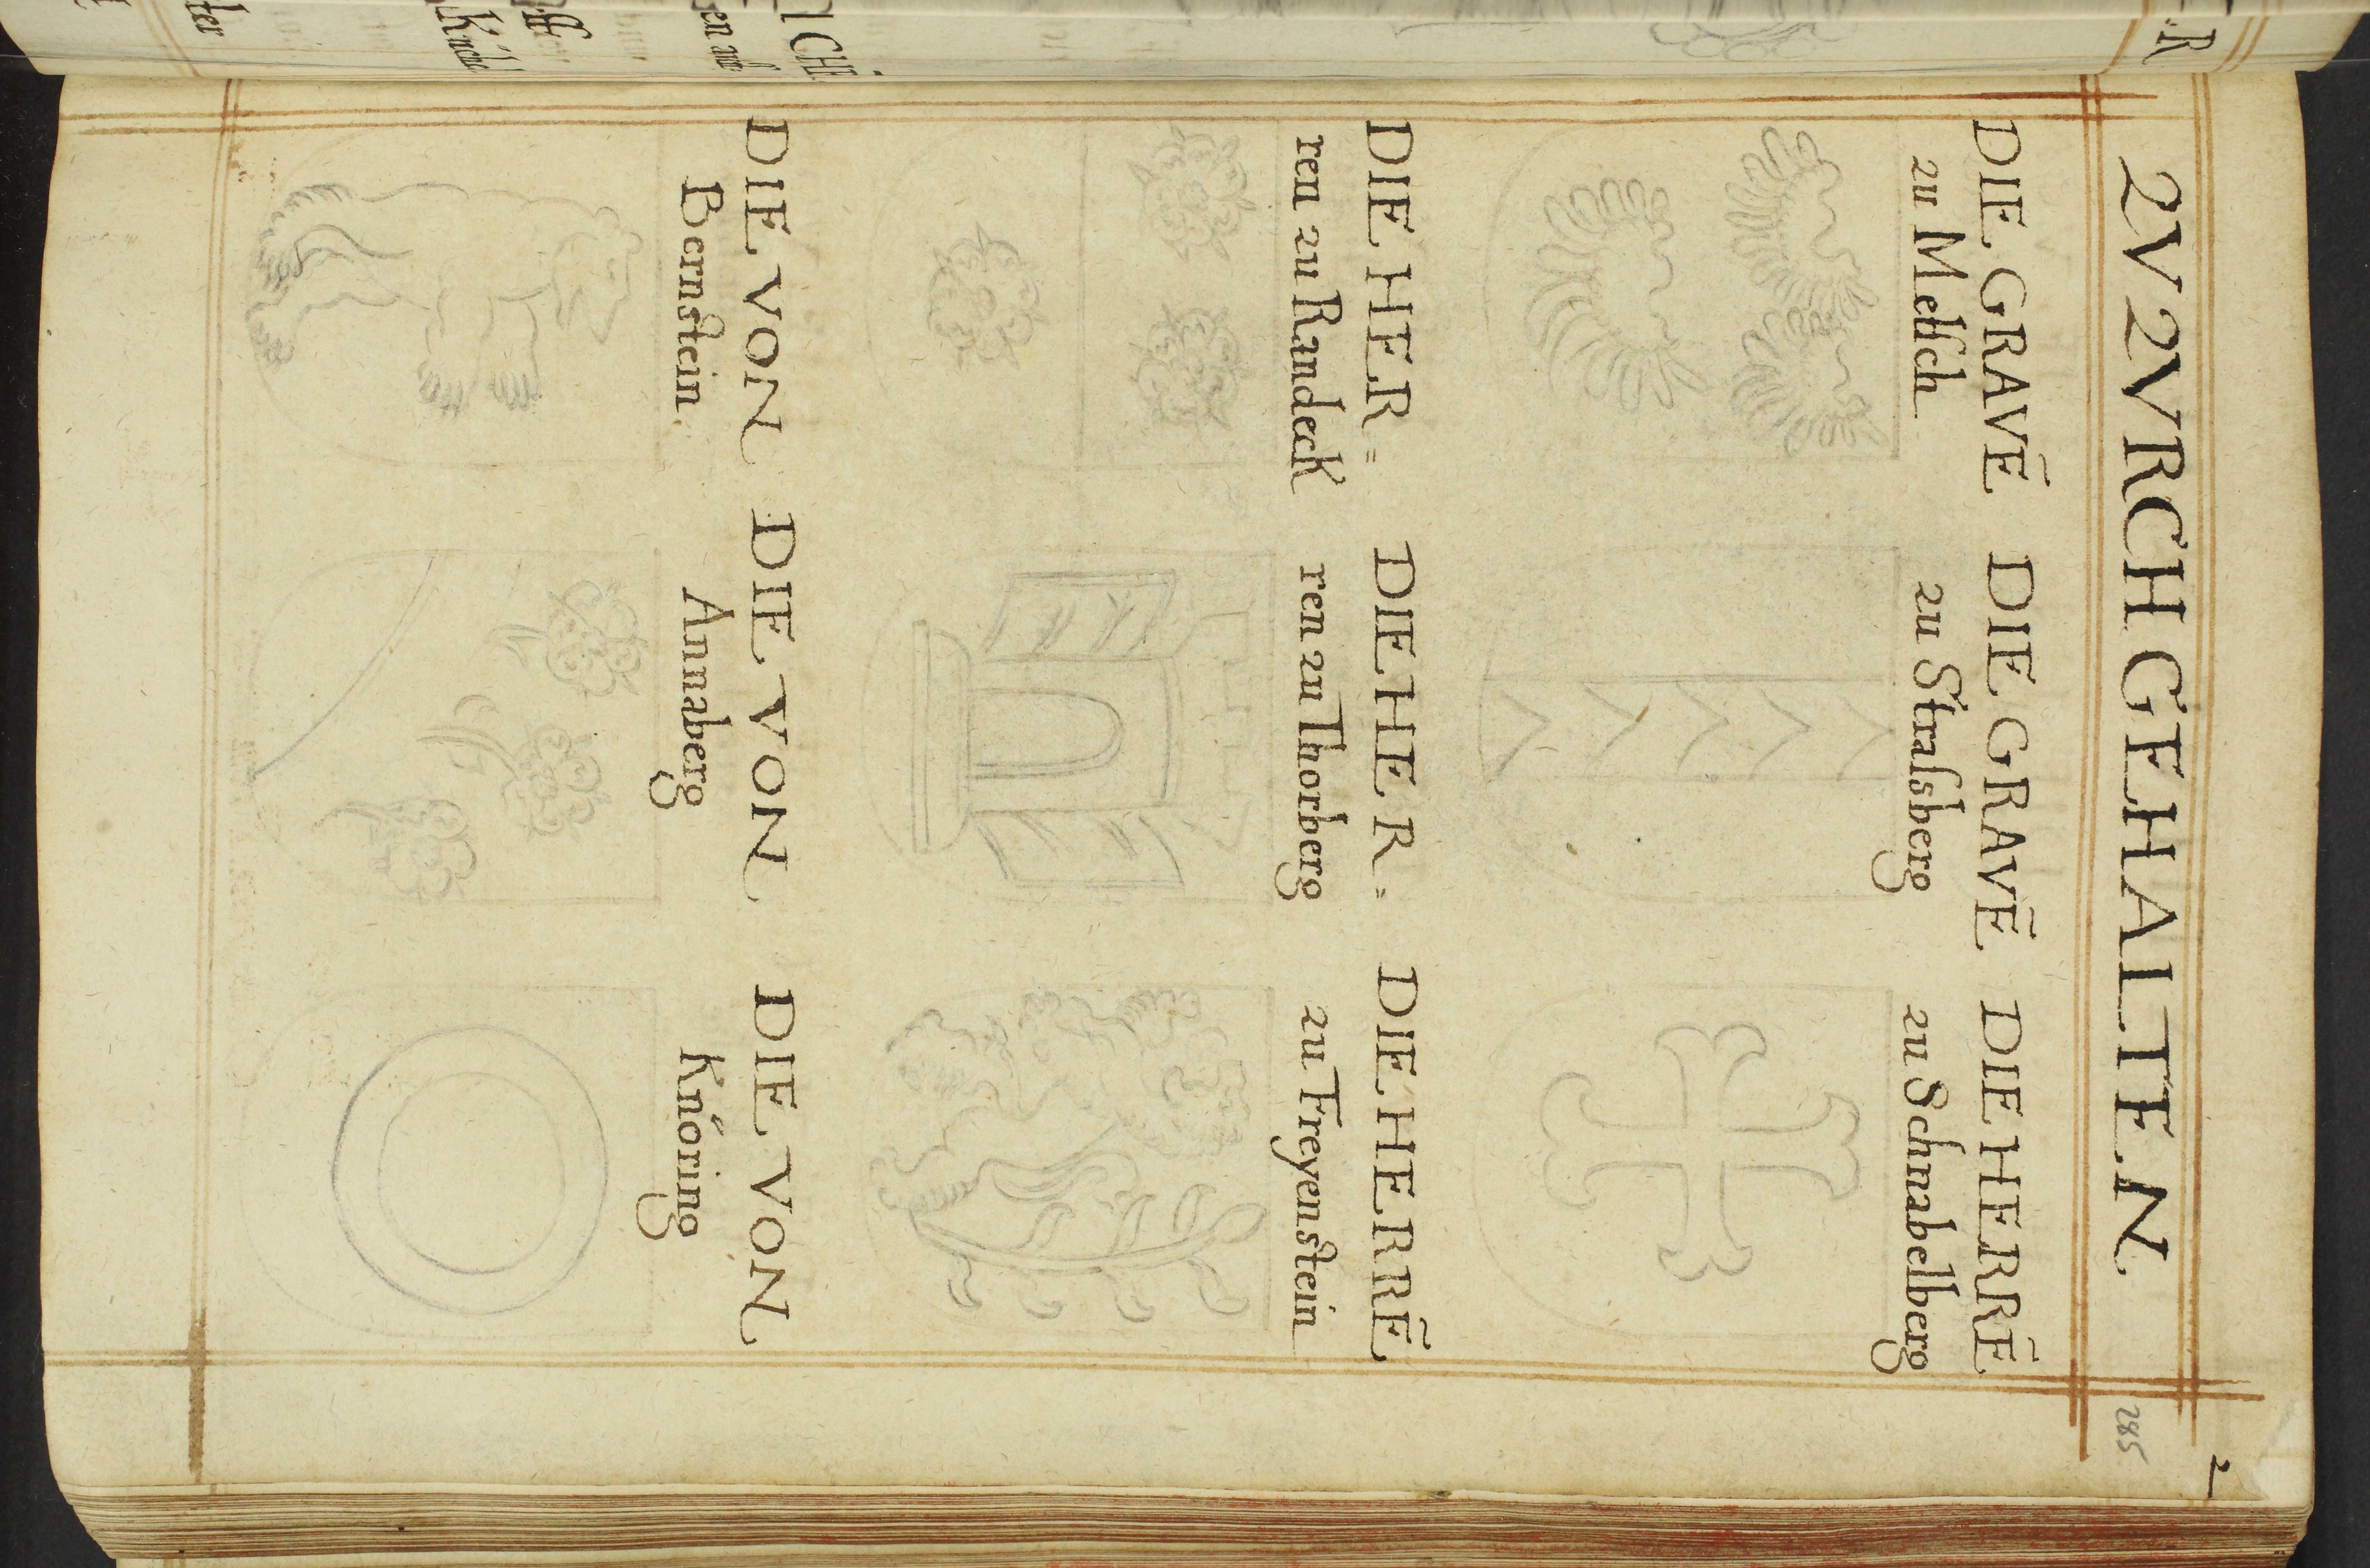 ZV ZVRCH GEHALTEN.
285
DIE GRAVẼ
zu Metsch
DIE GRAVẼ
zu Straſsberg
DIE HERRẼ
zu Schnabelberg
DIE HER=
ren zu Randeck
DIE HER=
ren zu Thorberg
DIE HERRẼ
zu Freyenstein
DIE VON
Bernstein
DIE VON
Annaberg
DIE VON
Knöring